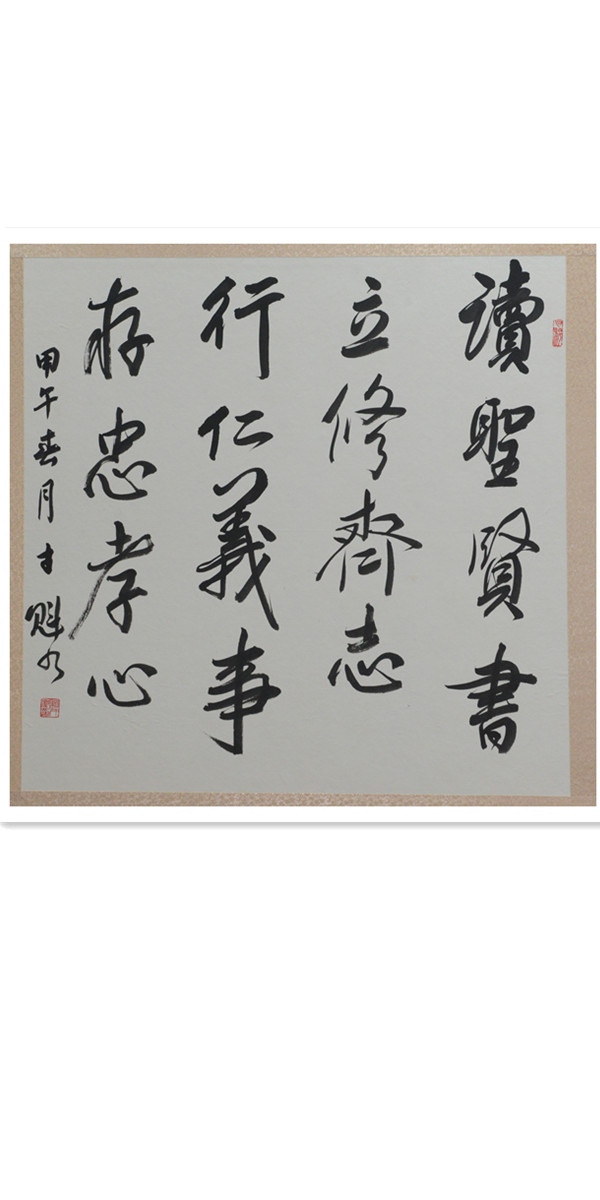 讀聖賢書
立修齊志
行仁義事
存忠孝心
甲午春月才魁